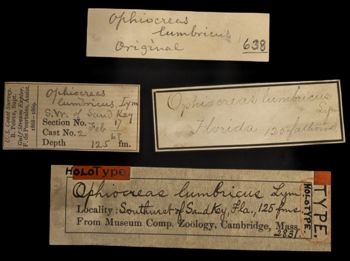 Ophiocreas
lumbricus
Original 638
U.S. Coast Survey.
B. Peirce, Supt.
Gulf Stream Explor.
F. de Pourtales, Assist.
1868-1869.
Ophiocreas
lumbricus Lym
S.W. of Sand Key
Section No. Feb 17
Cast No. 2 68
Depth 125 fm.
Ophiocreas lumbricus
Lym
Florida 125 fathoms
HOLOType
Ophiocreas lumbricus Lym.
Locality: Southwest of Sand Ky, Fla., 125 fms
From Museum Comp. Zoology, Cambridge, Mass.
2831.
TYPE
HOLOTYPE.